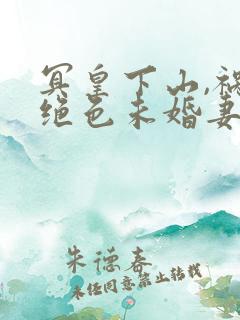 冥皇下山,祸
绝色未婚妻
朱德春
未经同意禁止转载